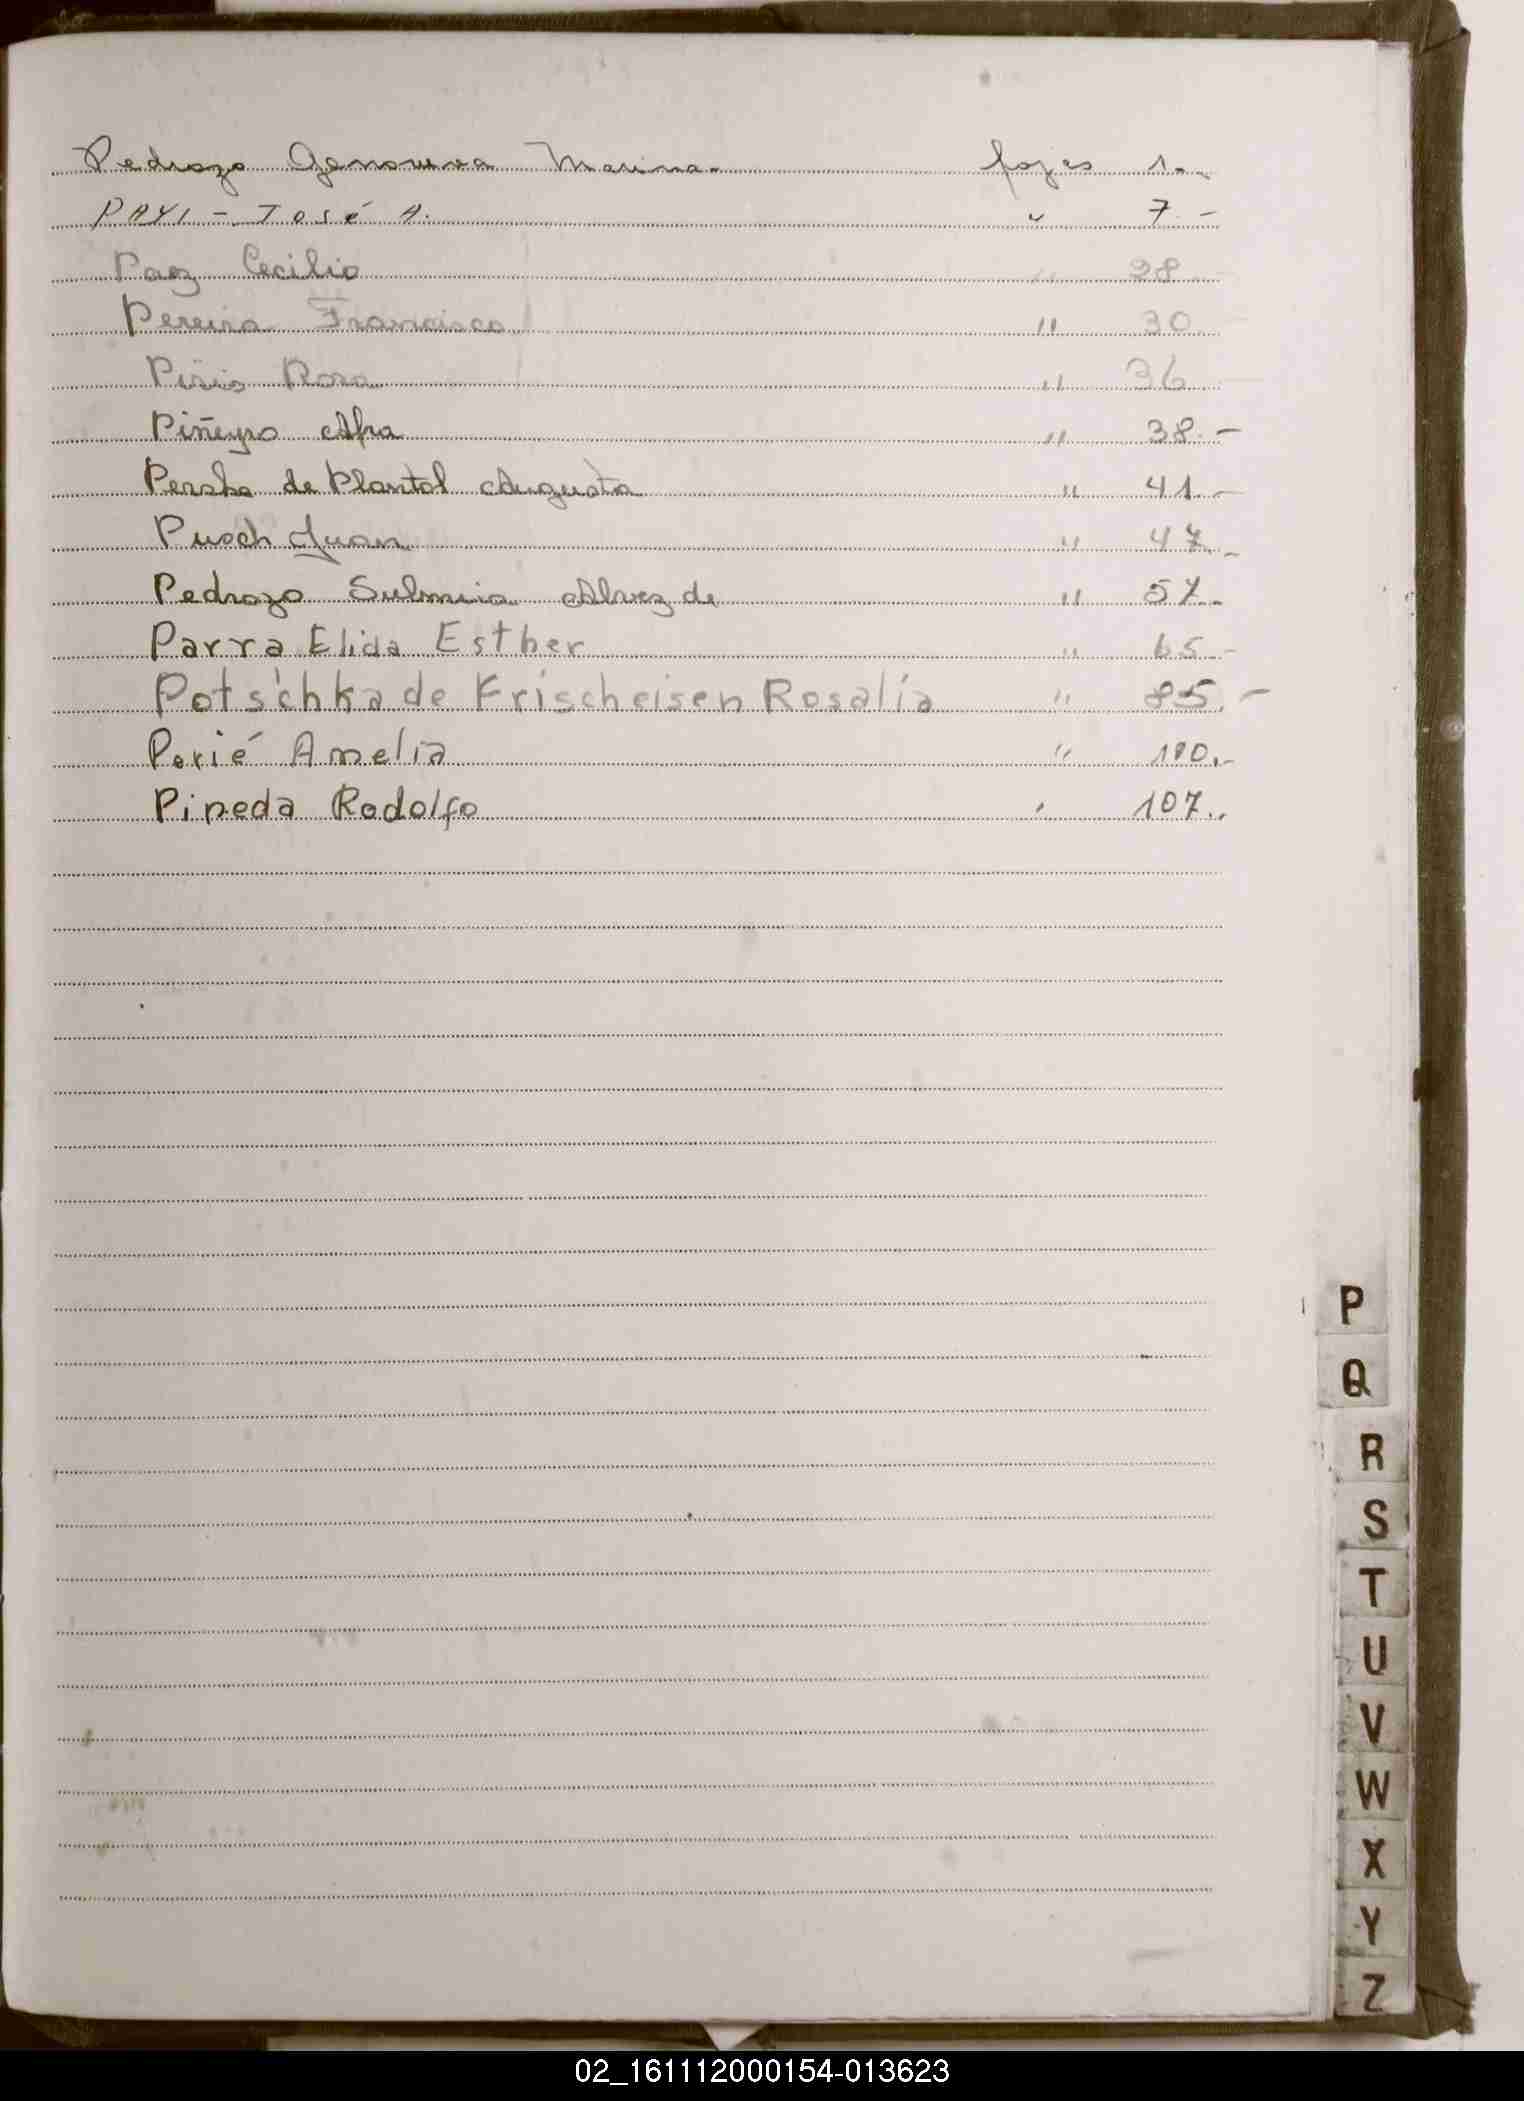 Pedrozo Genoveva Marina. fojas 1.-
PAYI - José A. " 7.-
Paez Cecilio " 28
Pereira Francisco " 30
Piris Rosa " 36
Piñeyro Afra " 38.-
de Plantol Augusta " 41.-
Pusch Juan " 47.-
Pedrozo Sulmira Alvez de " 57.-
Parra Elida Esther " 65.-
Potschka de Frischeisen Rosalía " 85.-
Porié Amelia " 100.-
Pineda Rodolfo " 107.-
P
Q
R
S
T
U
V
W
X
Y
Z
02_161112000154-013623